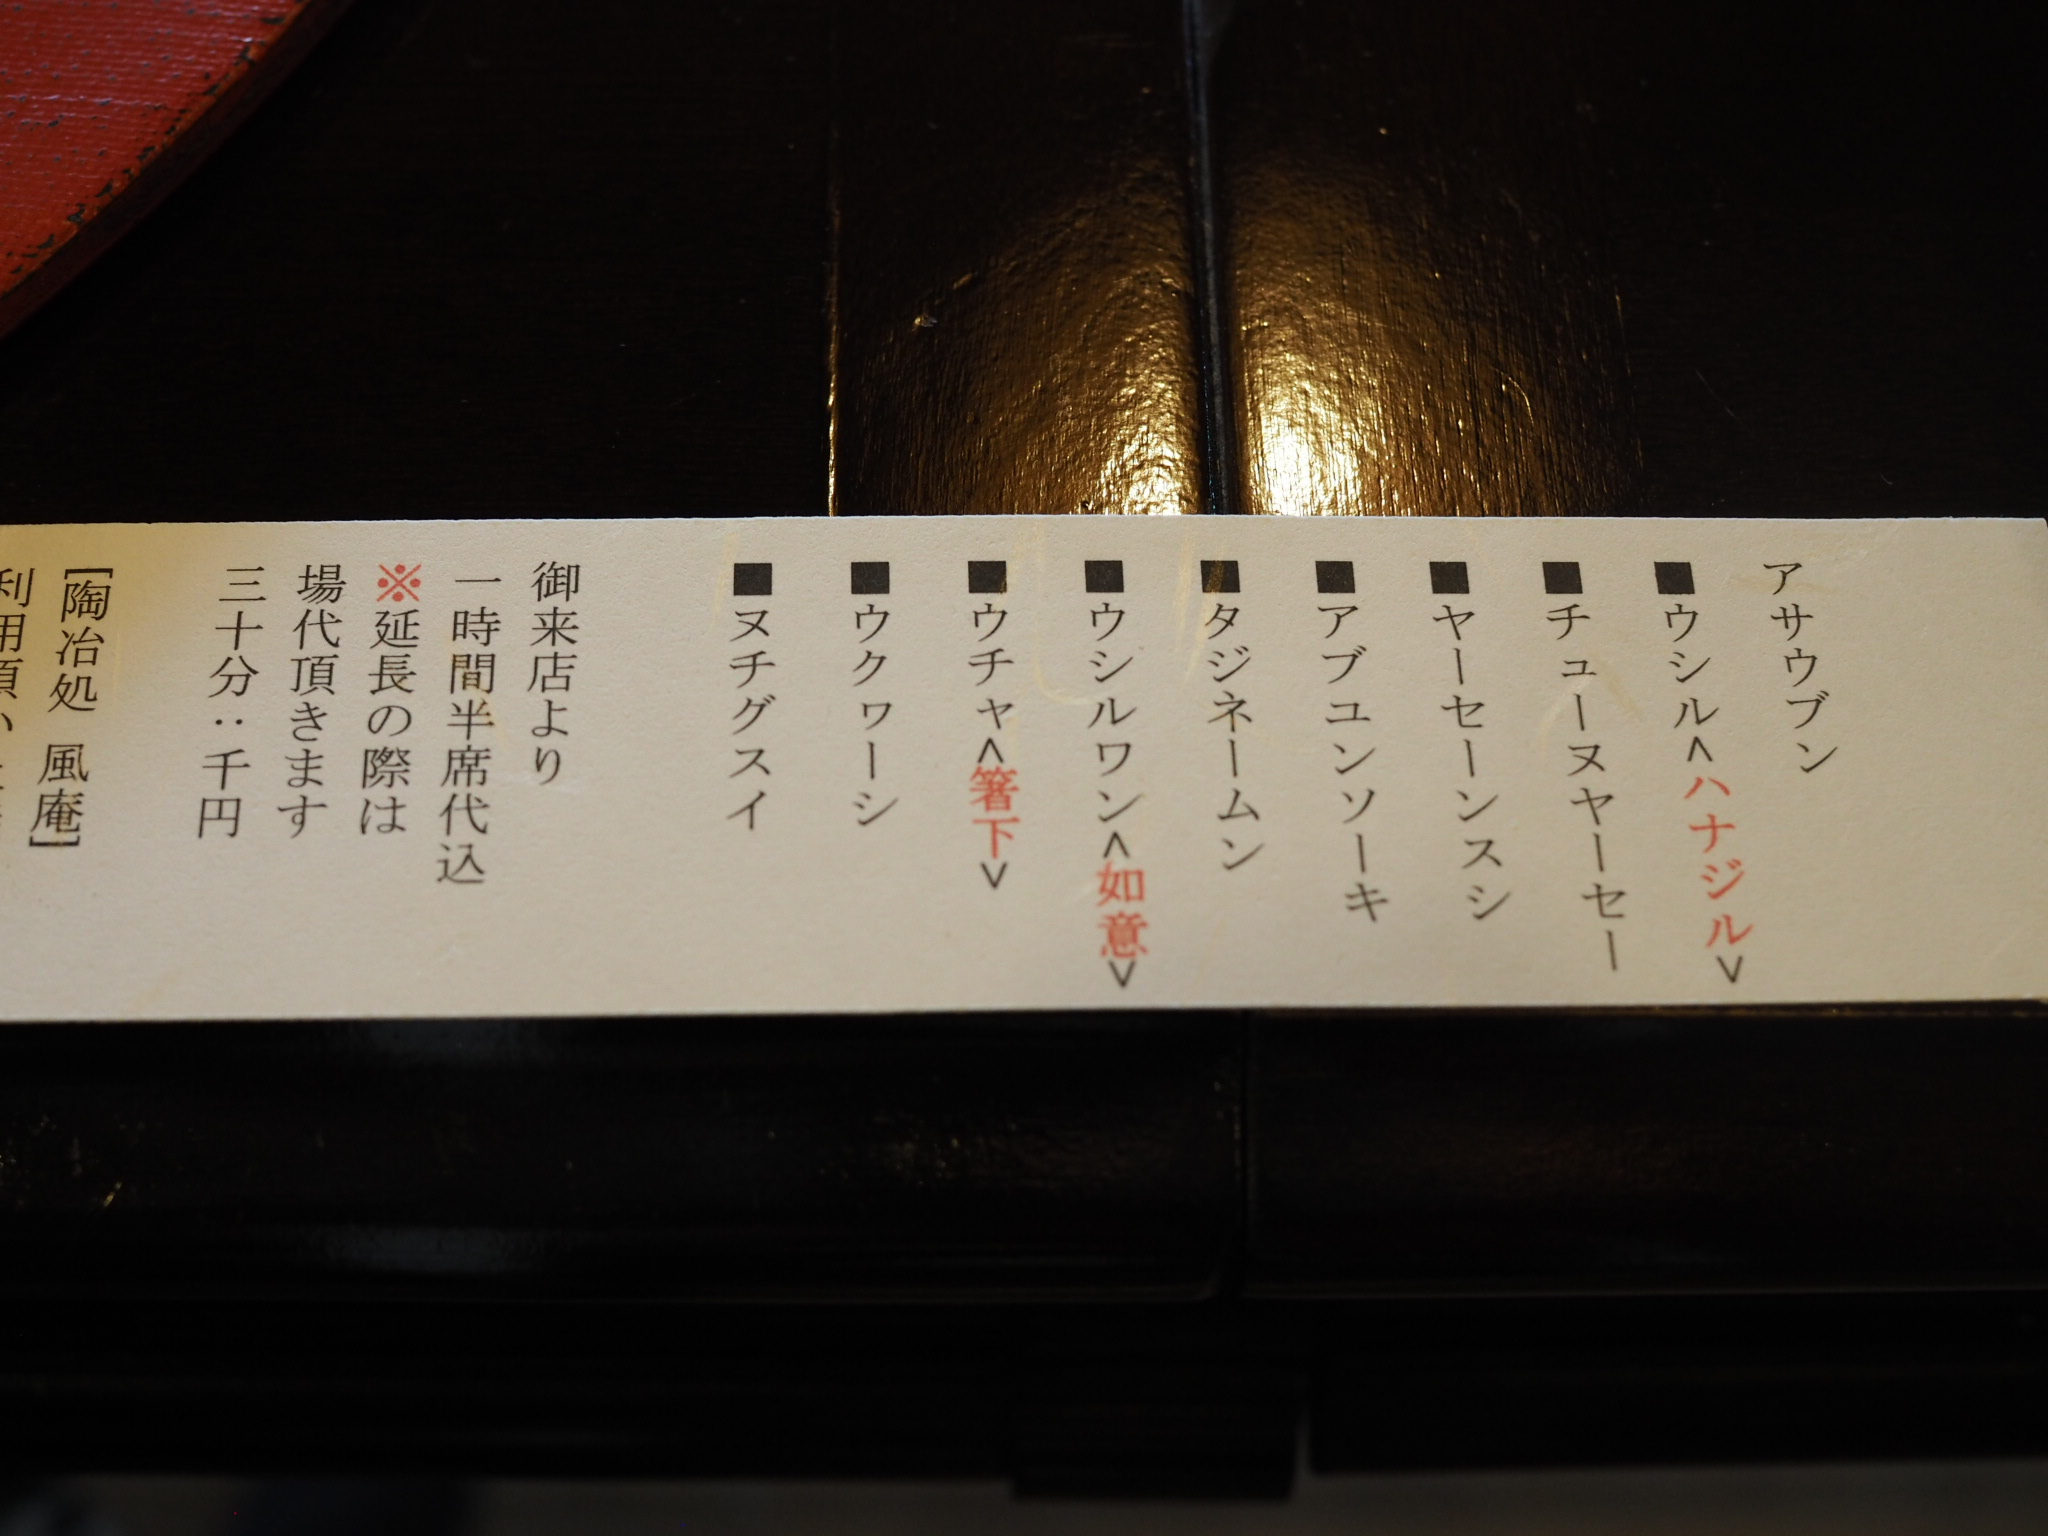 アサウブン
■ウシル<ハナジル>
■チューヌヤーセー
■ヤーセーンスシ
■アブユンソーキ
■タジネームン
■ウシルワン<如意>
■ウチャ<箸下>
■ウクヮーシ
■ヌチグスイ
御来店より
一時間半席代込
※延長の際は
場代頂きます
三十分：千円
[陶冶処 風庵]
利用頂